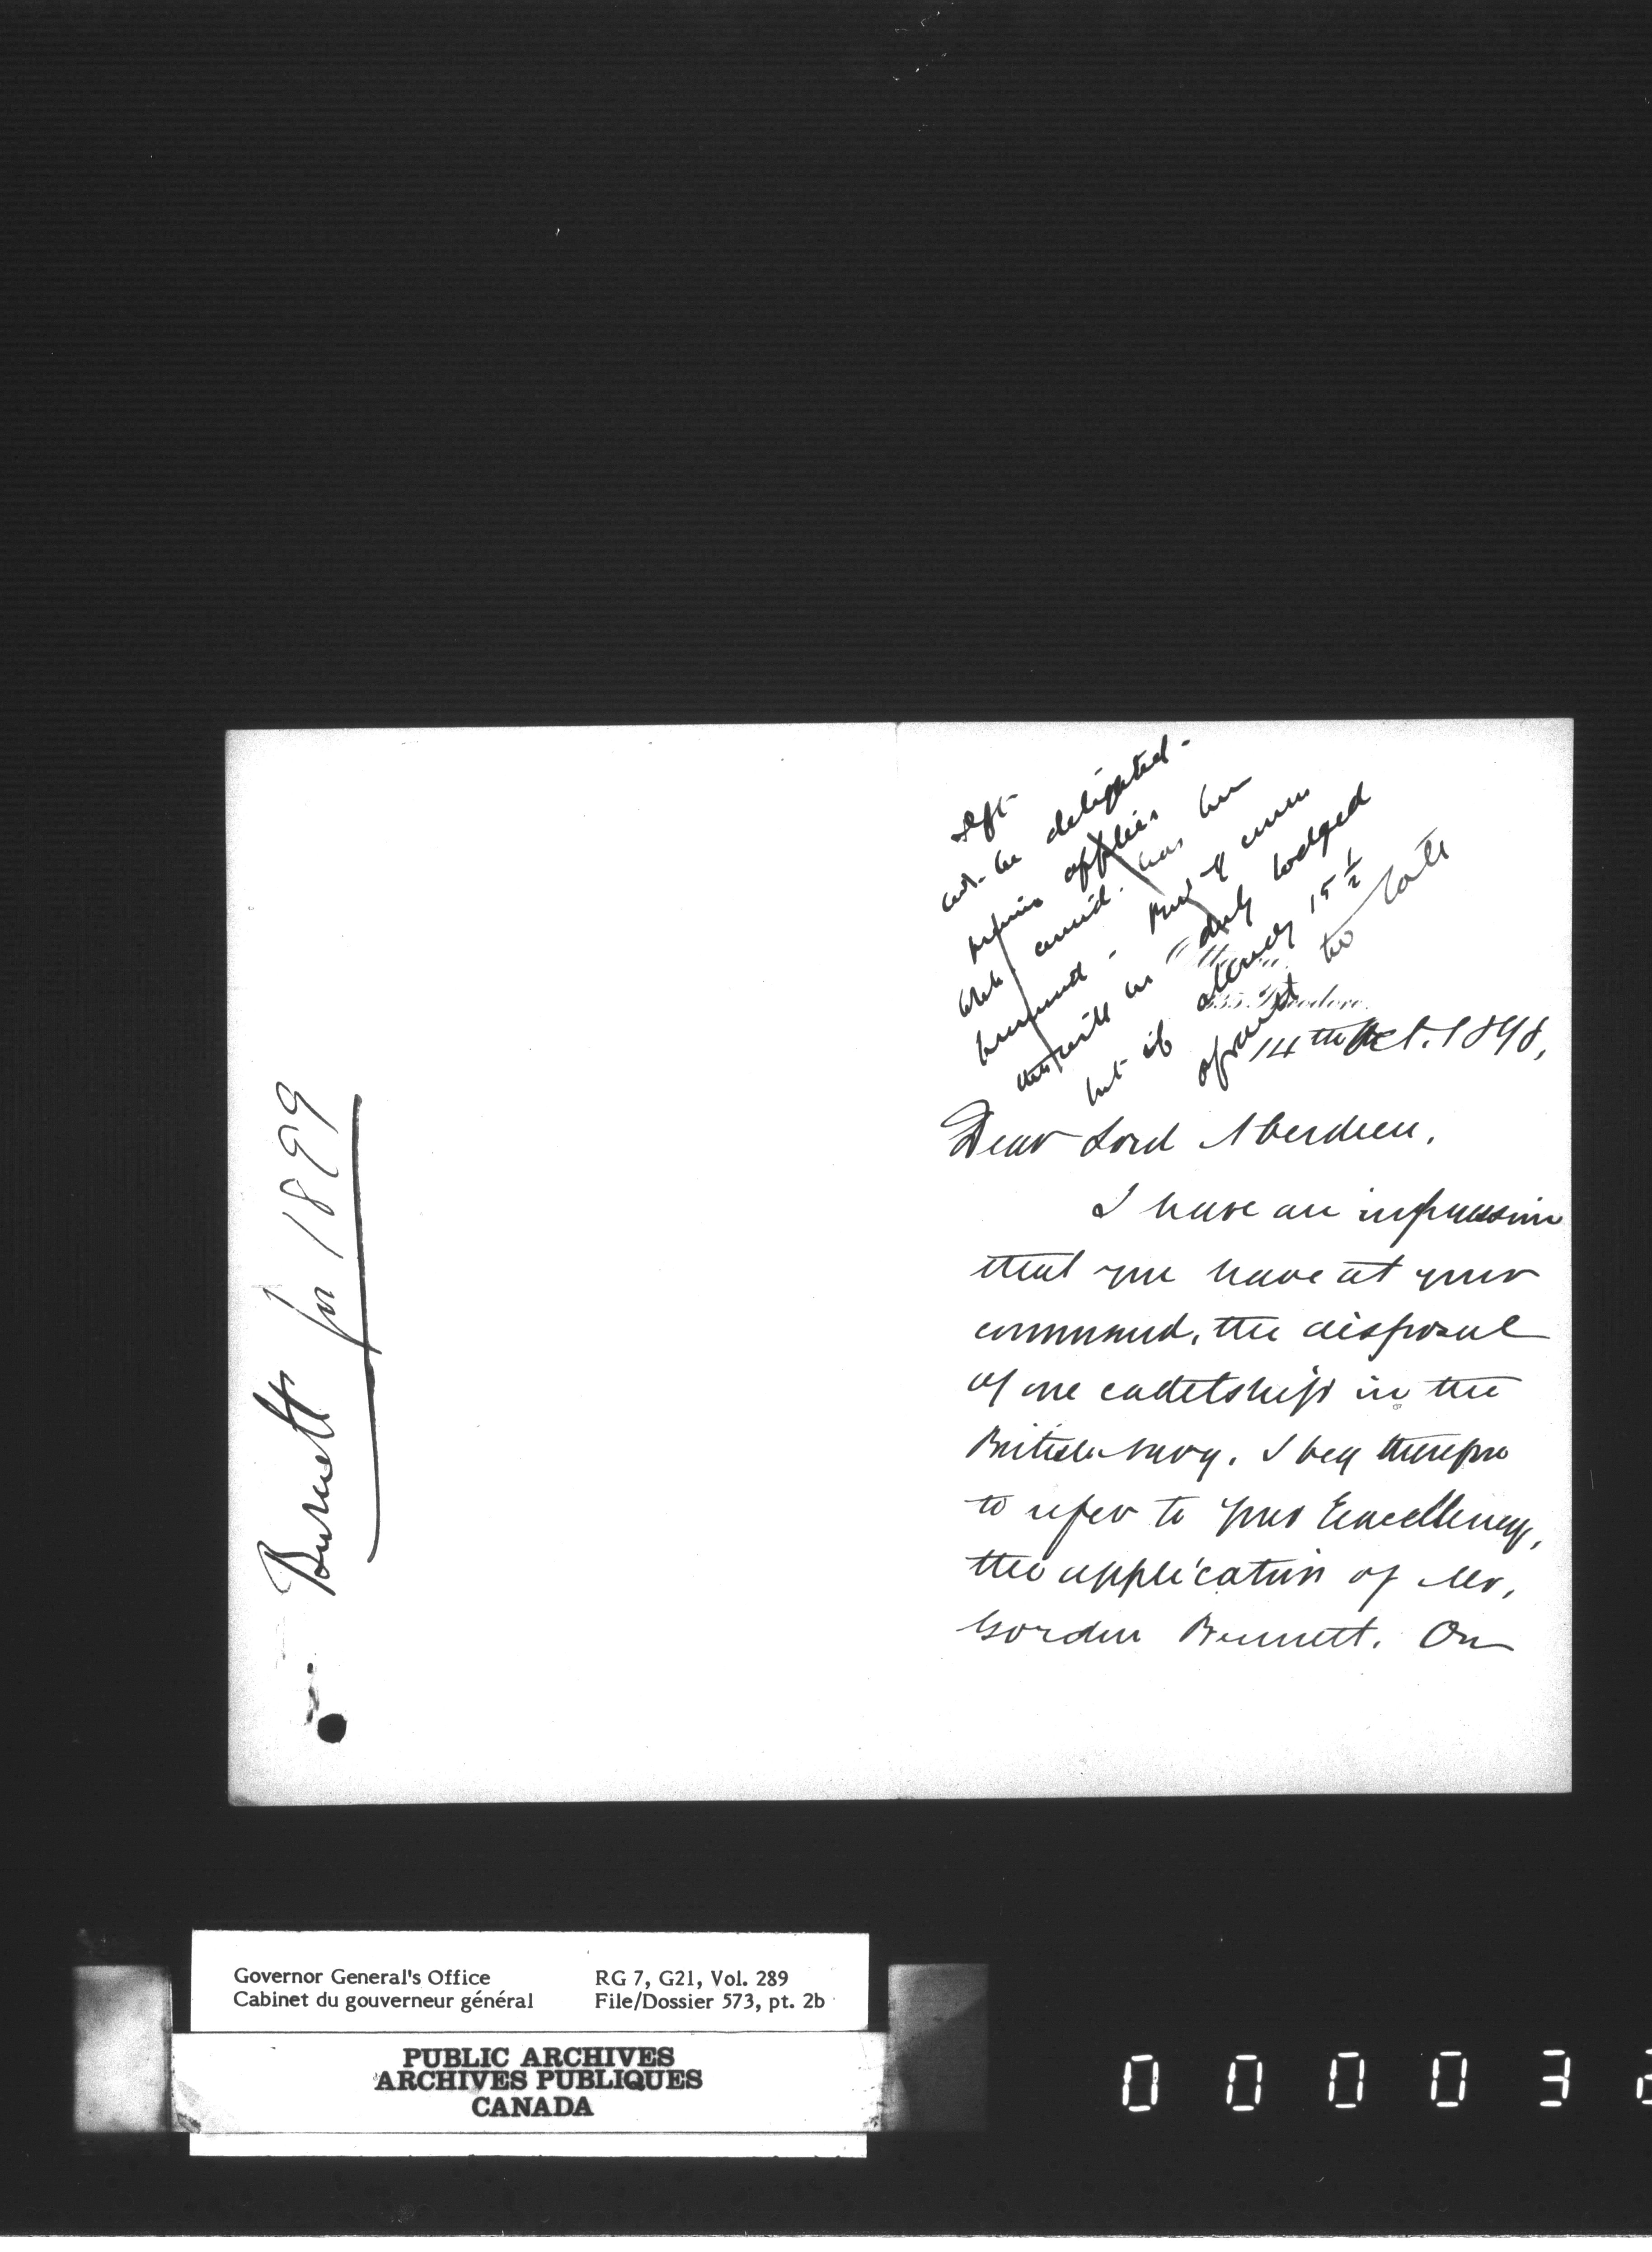 Burnett for 1899
delighted -
has been
duly lodged
but if already 15 1/2
afraid too late
14th Oct. 1898,
Dear Lord Aberdeen,
I have an impression
that you have at your
command, the disposal
of one cadetship in the
British Navy. I beg therefore
to refer to your Excellency,
the application of Mr.
Gordon Bennett. On
Governor General's Office
Cabinet du gouverneur général
RG 7, G21, Vol. 289
File/Dossier 573, pt. 2b
PUBLIC ARCHIVES
ARCHIVES PUBLIQUES
CANADA
0 0 0 0 3